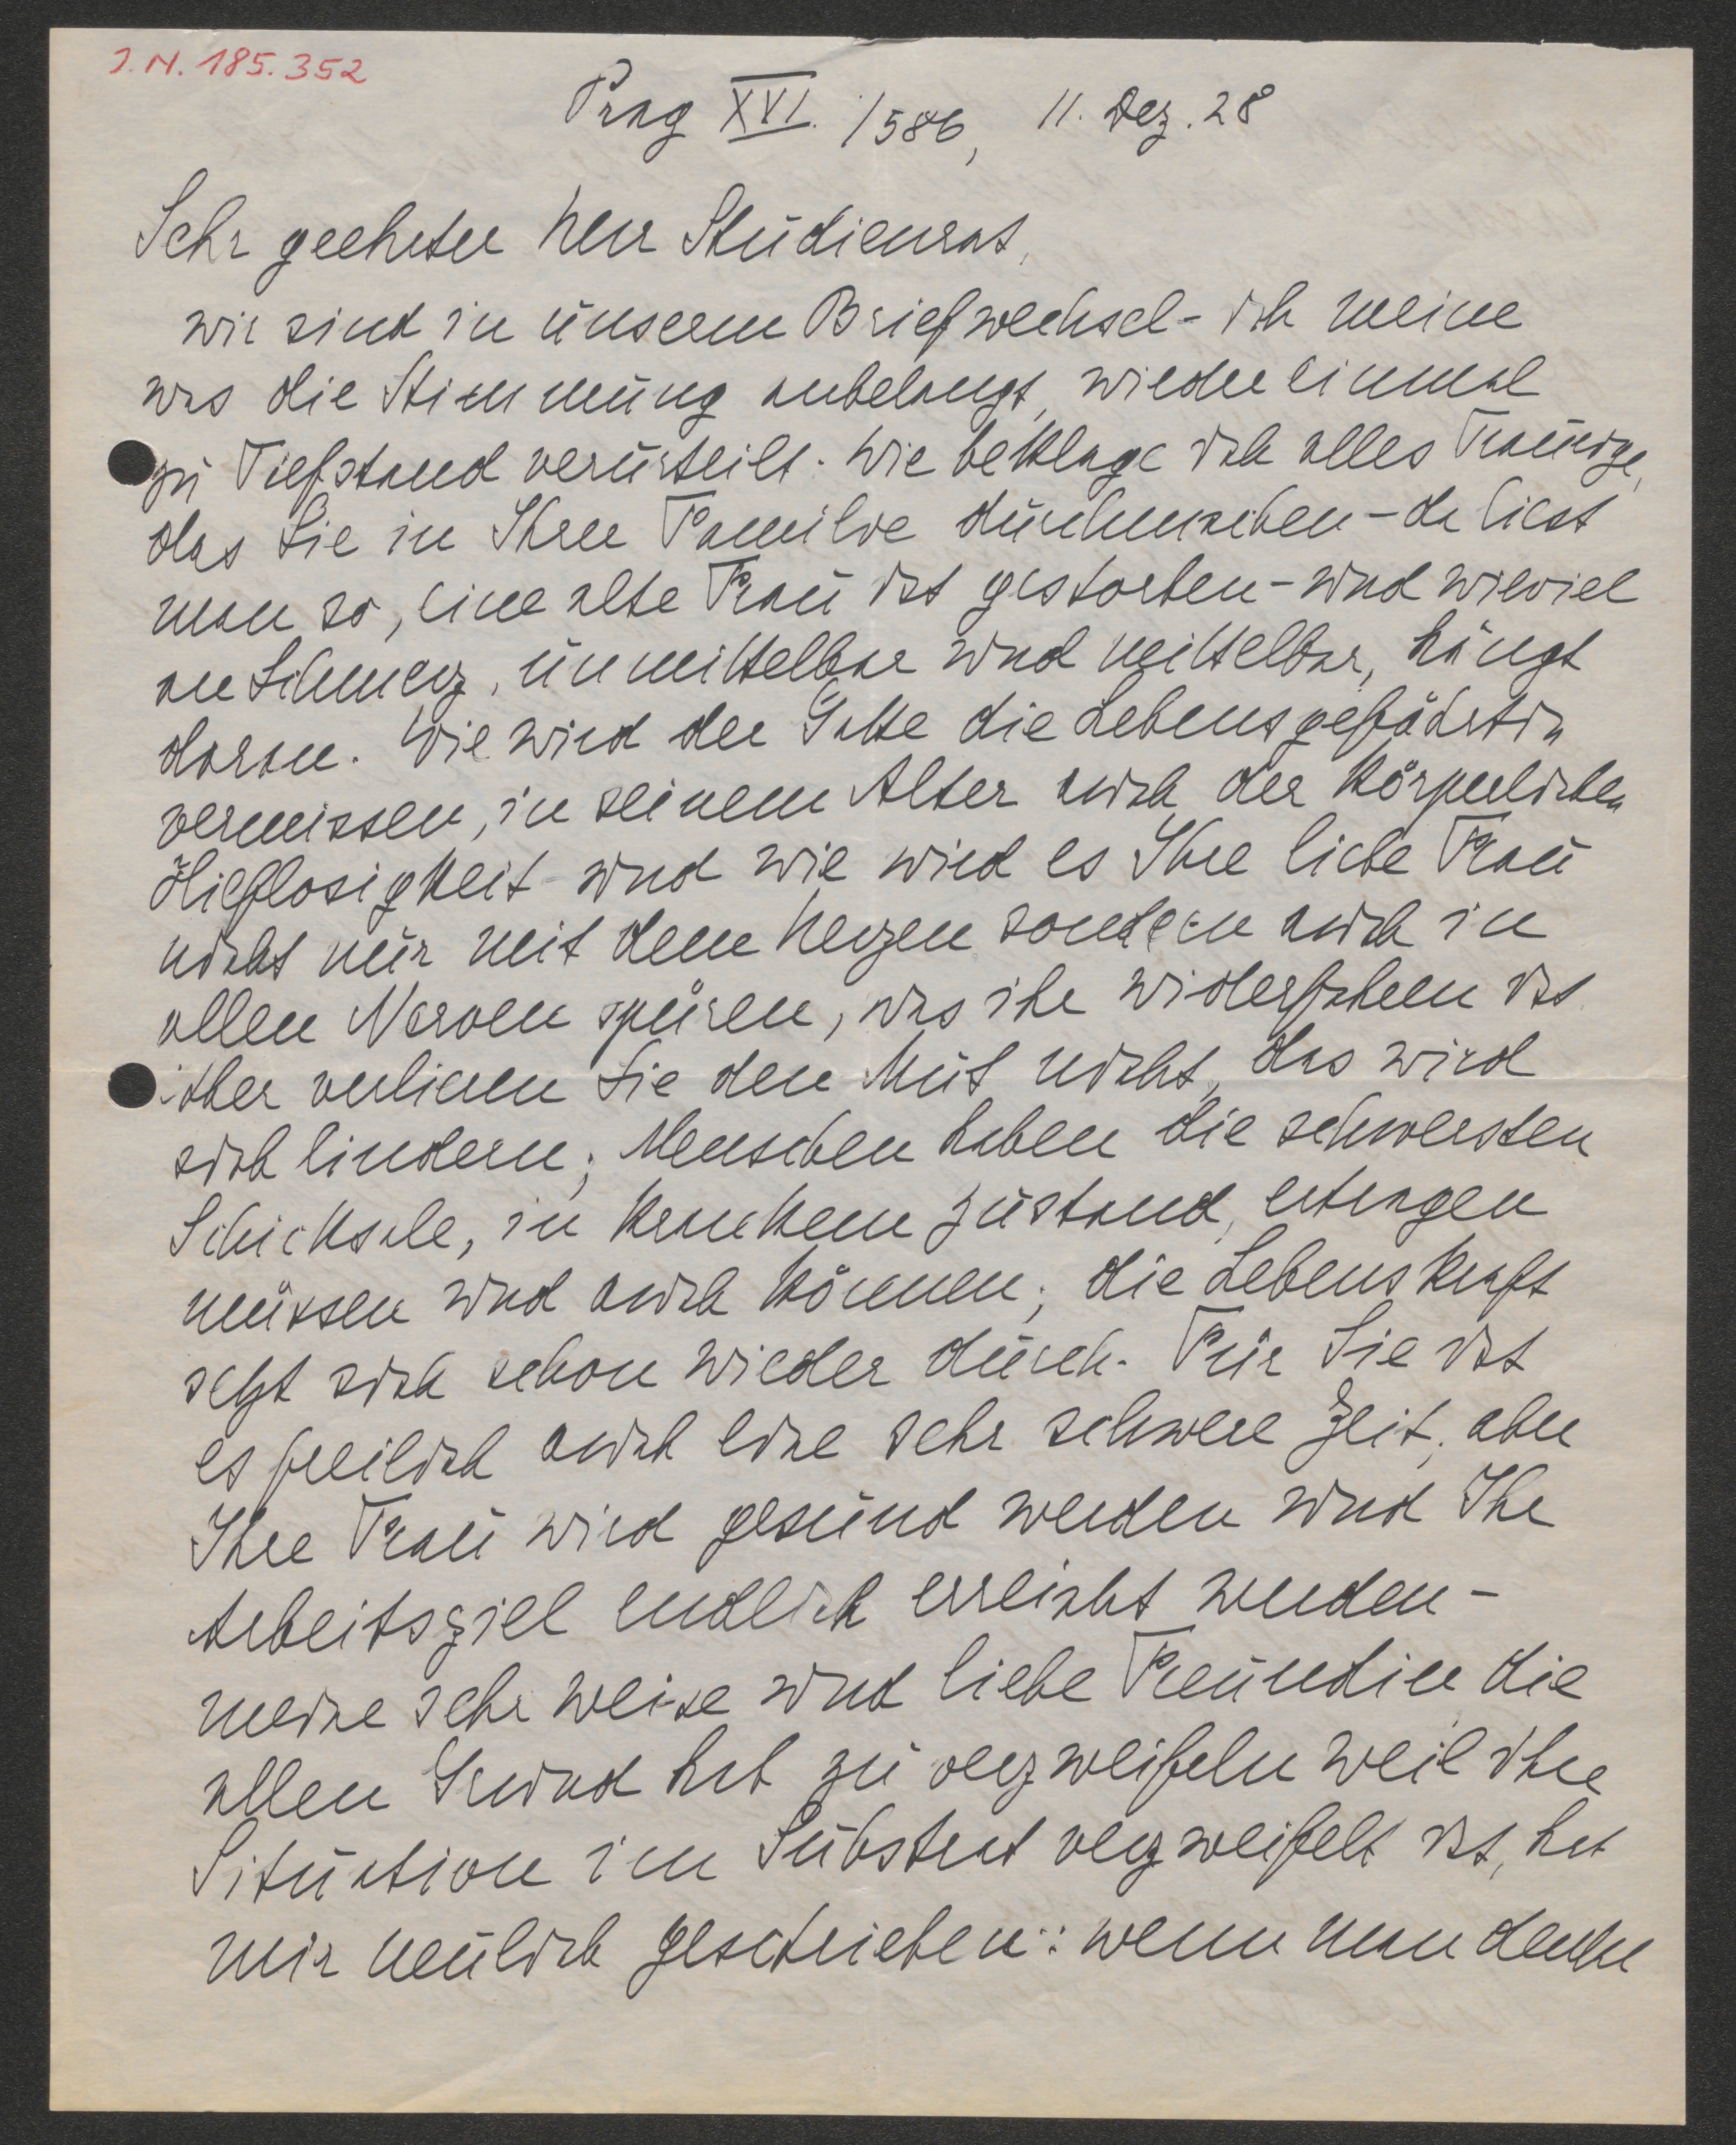 J.N. 185.352
Prag XVI. /586, 11. Dez. 28
Sehr geehrter Herr Studienrat,
wir sind in unserem Briefwechsel - ich meine
was die Stimmung anbelangt, wieder einmal
zu Tiefstand verurteilt. Wie beklage ich alles Traurige,
das Sie in Ihrer Familie durchmachen - da liest
man so, eine alte Frau ist gestorben - und wieviel
an Schmerz, unmittelbar und mittelbar, hängt
daran. Wie wird der Gatte die Lebensgefährtin
vermissen, in seinem Alter auch der körperlichen
Hilflosigkeit - und wie wird es Ihre liebe Frau
nicht nur mit dem Herzen sondern auch in
allen Nerven spüren, was ihr widerfahren ist.
Aber verlieren Sie den Mut nicht, das wird
sich lindern; Menschen haben die schwersten
Schicksale, in krankem Zustand, ertragen
müssen und auch können; die Lebenskraft
setzt sich schon wieder durch. Für Sie ist
es freilich auch eine sehr schwere Zeit, aber
Ihre Frau wird gesund werden und Ihr
Arbeitsziel endlich erreicht werden -
meine sehr weise und liebe Freundin die
allen Grund hat zu verzweifeln weil ihre
Situation im Substrat verzweifelt ist, hat
mir neulich geschrieben: wenn man